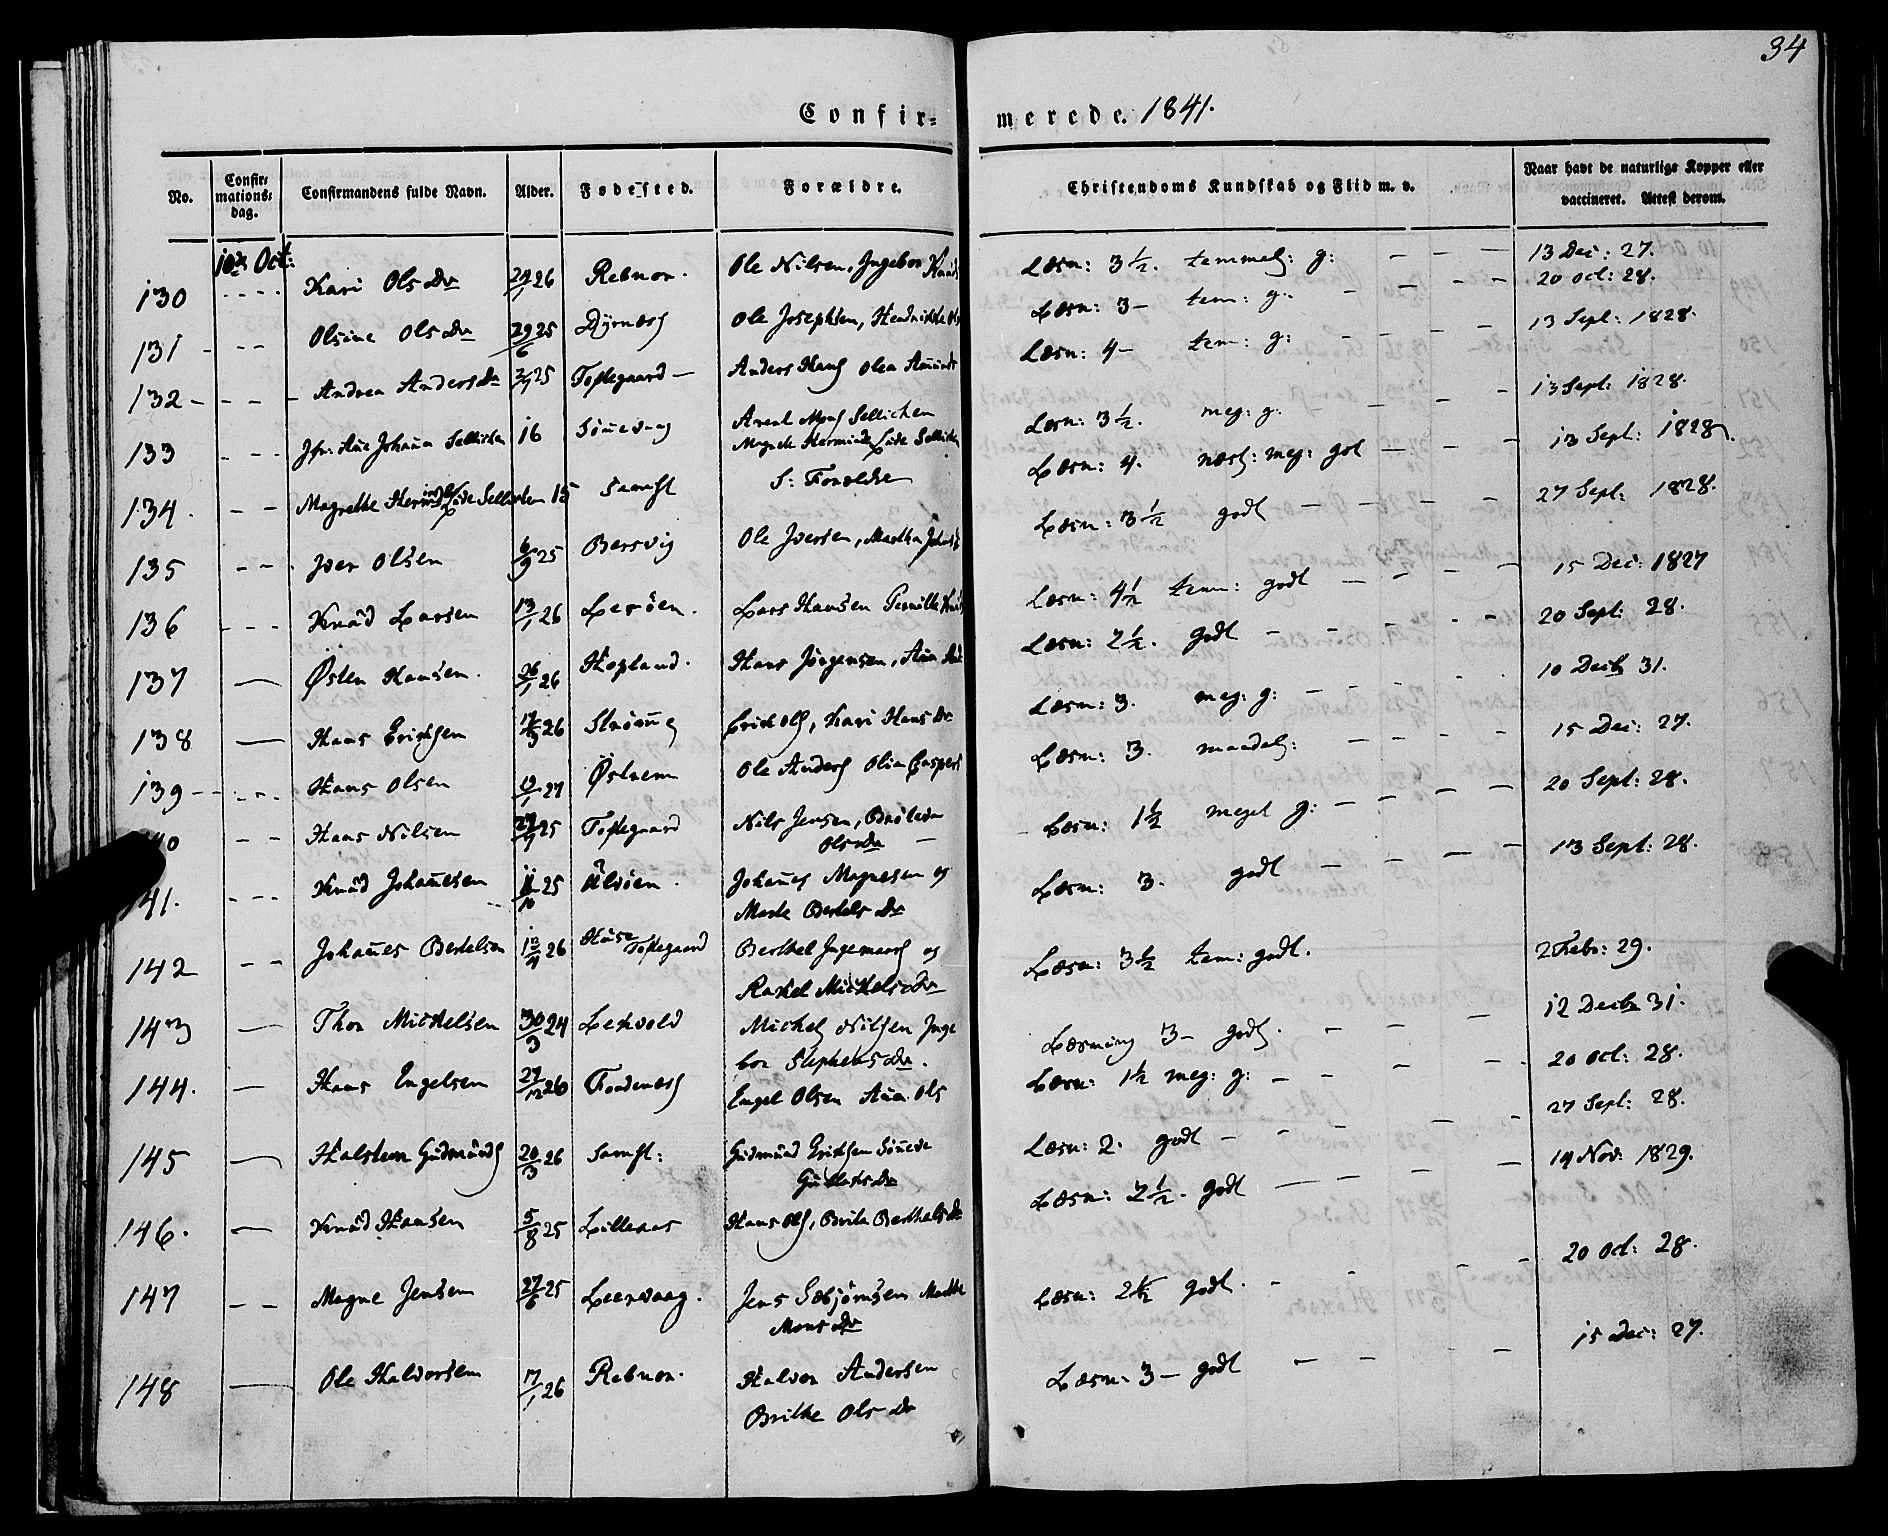 34
Confir- merede. 1841.
No. Confirmationsdag. Confirmandens fulde Navn. Alder. Fødested. Forældre. Christendoms Kundskab og Flid m. v. Naar havt de naturlige Kopper eller vaccineret. Attest derom.
10de Oct:
130 Kari Ols Dr 24/1 26 Rebnor. Ole Nilsen, Ingebor Læsn: 3 1/2. temmel: g: 13 Dec: 27.
131 Olsine Ols Dr 29/6 25 Dyrnæs Ole Josephsen, Læsn: 3 — tem: g: 20 Oct: 28.
132 Andrea Anders Dr 25 Toftegaard Anders Hans Olea Læsn: 4 — tem: g: 13 Sept: 1828.
133 Jfr: Ane Johana 16 Læsn: 3 1/2. meg: g: 13 Sept: 1828.
134. Magrethe 15 samst S: Forældre Læsn: 4. næst: meg: got 13 Sept: 1828.
135 Iver Olsen 6/9 25 Bersvig Ole Iversen, Martha Læsn: 3 1/2 godt 27 Sept: 1828.
136 Knud Larsen 13/1 26 Lerøen. Lars Hansen Pernille Læsn: 4 1/2 tem: godt 15 Dec: 1827
137 Østen Hansen. 26/1 26 Hopland. Hans Jørgensen, Læsn: 2 1/2. godt 20 Sept: 28.
138 Hans Ericksen 26 Strømme Erick Ols, Kari Hans Dr Læsn: 3. meg: g: 10 Decbr 31.
139 Hans Olsen 12/1 27 Østrem Ole Anders Olia Caspers Læsn: 3. maadel: 15 Dec: 27.
Hans Nilsen 25 Toftegaard Nils Jensen, Ols Dr Læsn: 1 1/2 meget g: 20 Sept: 28.
41. Knud Johanesen 11/10 25 Alvøen. Johanes Magnesen og Læsn: 3. godt 13 Sept: 28.
Marte Bertels Dr
142 Johanes Bertelsen 26 Toftegaard Berthel Ingemars og Læsn: 3 1/2 tem: godt. 2 Febr: 29.
Rakel Mickels Dr
143 Thor Mickelsen 30/3 24 Leknold Mickel Nilsen Inge Læsning 3 — godt. 12 Decbr 31.
bor Stephens Dr.
144. Hans Engelsen 27/12 26 Fondenæs Engel Olsen Ana Ols Læsn: 1 1/2 meg: g: 20 Oct: 28.
145 Halsten Gudmunds 20/3 26 samst: Gudmund Ericksen Læsn: 2. godt 27 Sept: 28.
146. Knud Hansen 5/8 25 Lilleaas Hans Ols, Brita Berthels Dr Læsn: 2 1/2. godt 14 Nov: 1829.
147 Magne Jensen 27/6 25 Leervaag. Jens Læsn: 2 1/2 godt. 20 Oct: 28.
Mons Dr
148 Ole Halvorsen 17/1 26 Rebnor. Halvor Andersen Læsn: 3 — godt 15 Dec: 27.
Brithe Ols Dr